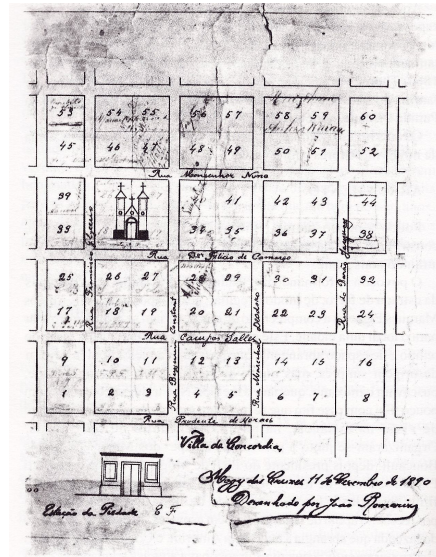 53 54 55 56 57 58 59 60
45 46 47 48 49 50 51 52
Rua Monsenhor Nino
39 41 42 43 44
33 34 35 36 37 38
Rua Dr. Felicio de Camargo
25 26 27 28 29 30 31 32
17 18 19 20 21 22 23 24
Rua Campos Salles
9 10 11 12 13 14 15 16
1 2 3 4 5 6 7 8
Rua Prudente de Moraes
Rua Francisco Glycerio
Rua Benjamin Constant
Rua Marechal Deodoro
Villa da Concordia
Mogy das Cruzes 11 de Dezembro de 1890
Desenhado por João Romariz
Estação da Piedade E F.